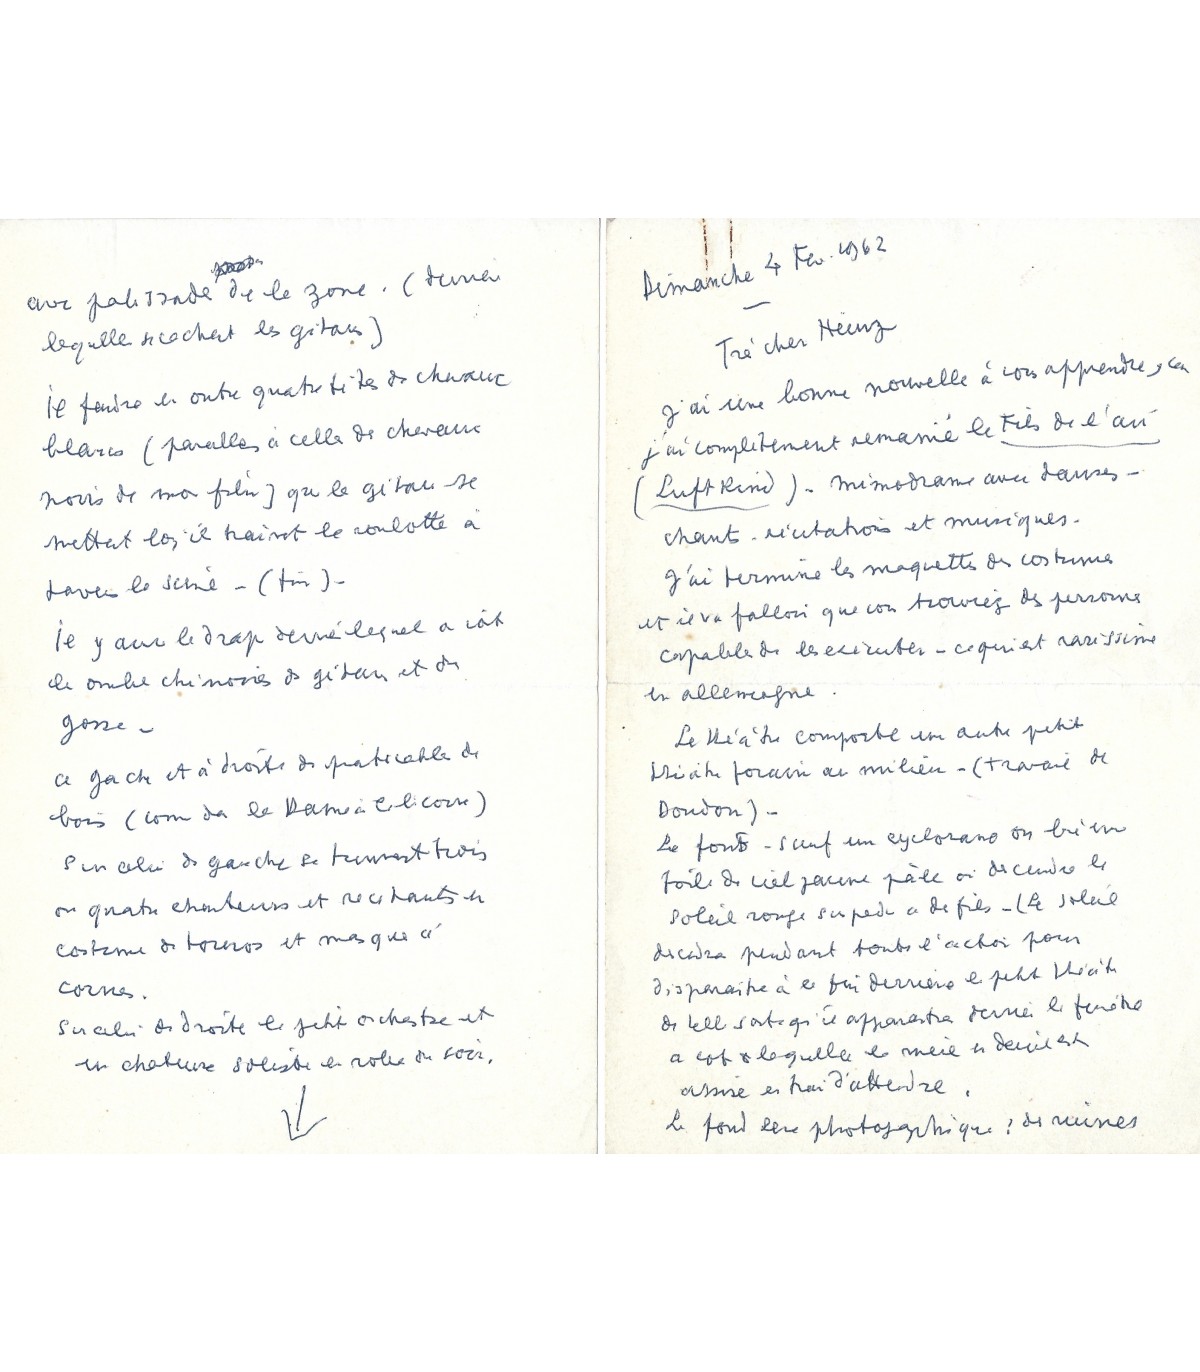 Dimanche 4 Fev. 1962
Très cher Heinz
J'ai une bonne nouvelle à vous apprendre,
j'ai complètement remanié le Fils de l'air
(Luftkind) - mimodrame avec danses -
chants - récitations et musiques -
J'ai terminé les maquettes des costumes
et il va falloir que vous trouviez des personnes
capables de les exécuter - ce qui est rarissime
en allemagne.
Le théâtre comporte un autre petit
théâtre forain au milieu - (travail de
Doudou) -
Le fond - sauf un cyclorama ou bien une
toile de ciel jaune pâle où descendra le
soleil rouge suspendu a des fils - (Le soleil
descendra pendant toute l'action pour
disparaitre à la fin derrière le petit théâtre
de telle sorte qu'il apparaitra derrière la fenêtre
a coté de laquelle la mère en deuil est
assise en train d'attendre.
Le fond sera photographique : des ruines
avec palissade de la zone. (derrière
laquelle se cachent les gitans)
Il faudra en outre quatre têtes de chevaux
blancs (pareilles à celles des chevaux
noirs de mon film) que les gitans se
mettent lorsqu'il trainent la roulotte à
travers la scène - (fin) -
Il y aura le drap derrière lequel on voit
les ombres chinoises des gitans et du
gosse -
a gauche et à droite des praticables de
bois (comme dans la Dame à la licorne)
Sur celui de gauche se tiennent trois
ou quatre chanteurs et récitants en
costume de toreros et masques à
cornes.
Sur celui de droite le petit orchestre et
une chanteuse soliste en robe du soir.